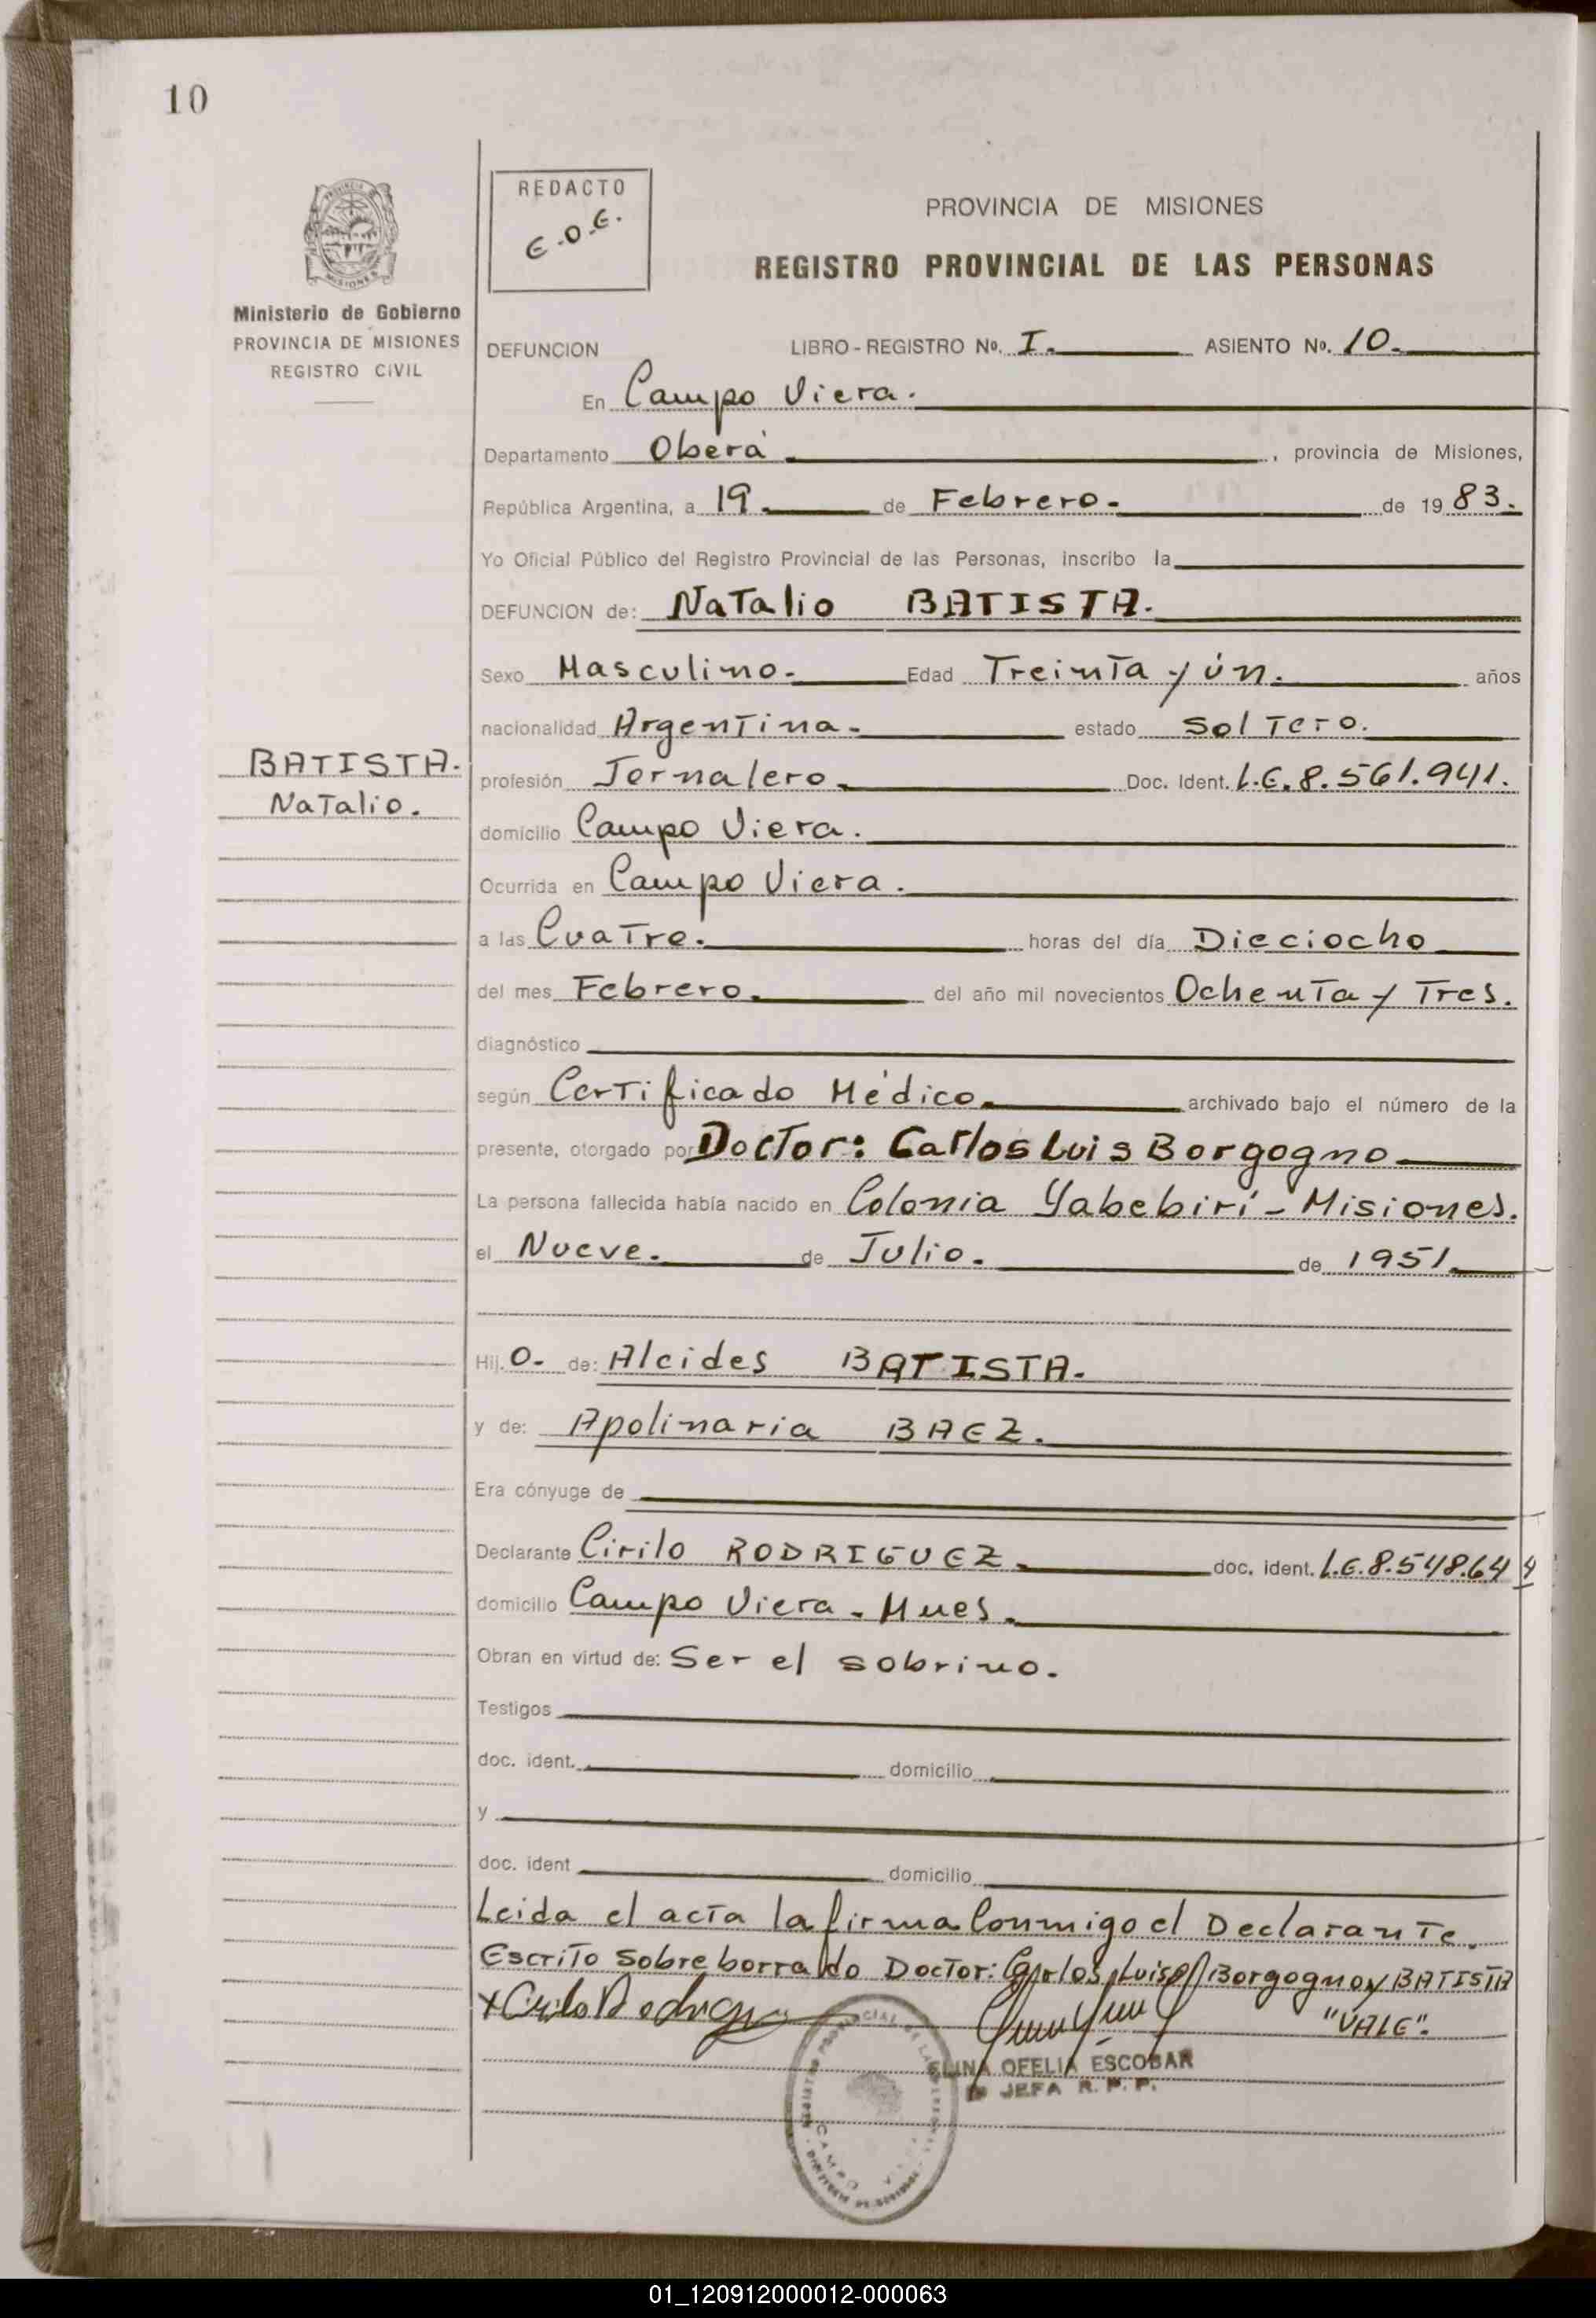 10
REDACTO
E.O.E.
PROVINCIA DE MISIONES
REGISTRO PROVINCIAL DE LAS PERSONAS
Ministerio de Gobierno
PROVINCIA DE MISIONES
REGISTRO CIVIL
DEFUNCION LIBRO-REGISTRO No. I. ASIENTO No. 10.
En Campo Viera.
Departamento Oberá , provincia de Misiones,
República Argentina, a 19. de Febrero. de 19 83.
Yo Oficial Público del Registro Provincial de las Personas, inscribo la
DEFUNCION de: Natalio BATISTA.
Sexo Masculino. Edad Treinta y ún. años
nacionalidad Argentina. estado Soltero.
BATISTA.
Natalio.
profesión Jornalero. Doc. Ident. L.E. 8.561.941.
domicilio Campo Viera.
Ocurrida en Campo Viera.
a las Cuatro. horas del día Dieciocho
del mes Febrero. del año mil novecientos Ochenta y Tres.
diagnóstico
según Certificado Médico. archivado bajo el número de la
presente, otorgado por Doctor: Carlos Luis Borgogno
La persona fallecida había nacido en Colonia Yabebirí - Misiones.
el Nueve. de Julio. de 1951.
Hij. o. de: Alcides BATISTA.
y de: Apolinaria BAEZ.
Era cónyuge de
Declarante Cirilo RODRIGUEZ. doc. ident. L.E. 8.548.644
domicilio Campo Viera. Mnes.
Obran en virtud de: Ser el sobrino.
Testigos
doc. ident. domicilio
y
doc. ident domicilio
Leida el acta la firma Conmigo el Declarante.
Escrito sobre borrado Doctor: Carlos Luis Borgogno y BATISTA
"VALE".
ELINA OFELIA ESCOBAR
JEFA R. P. P.
01_120912000012-000063